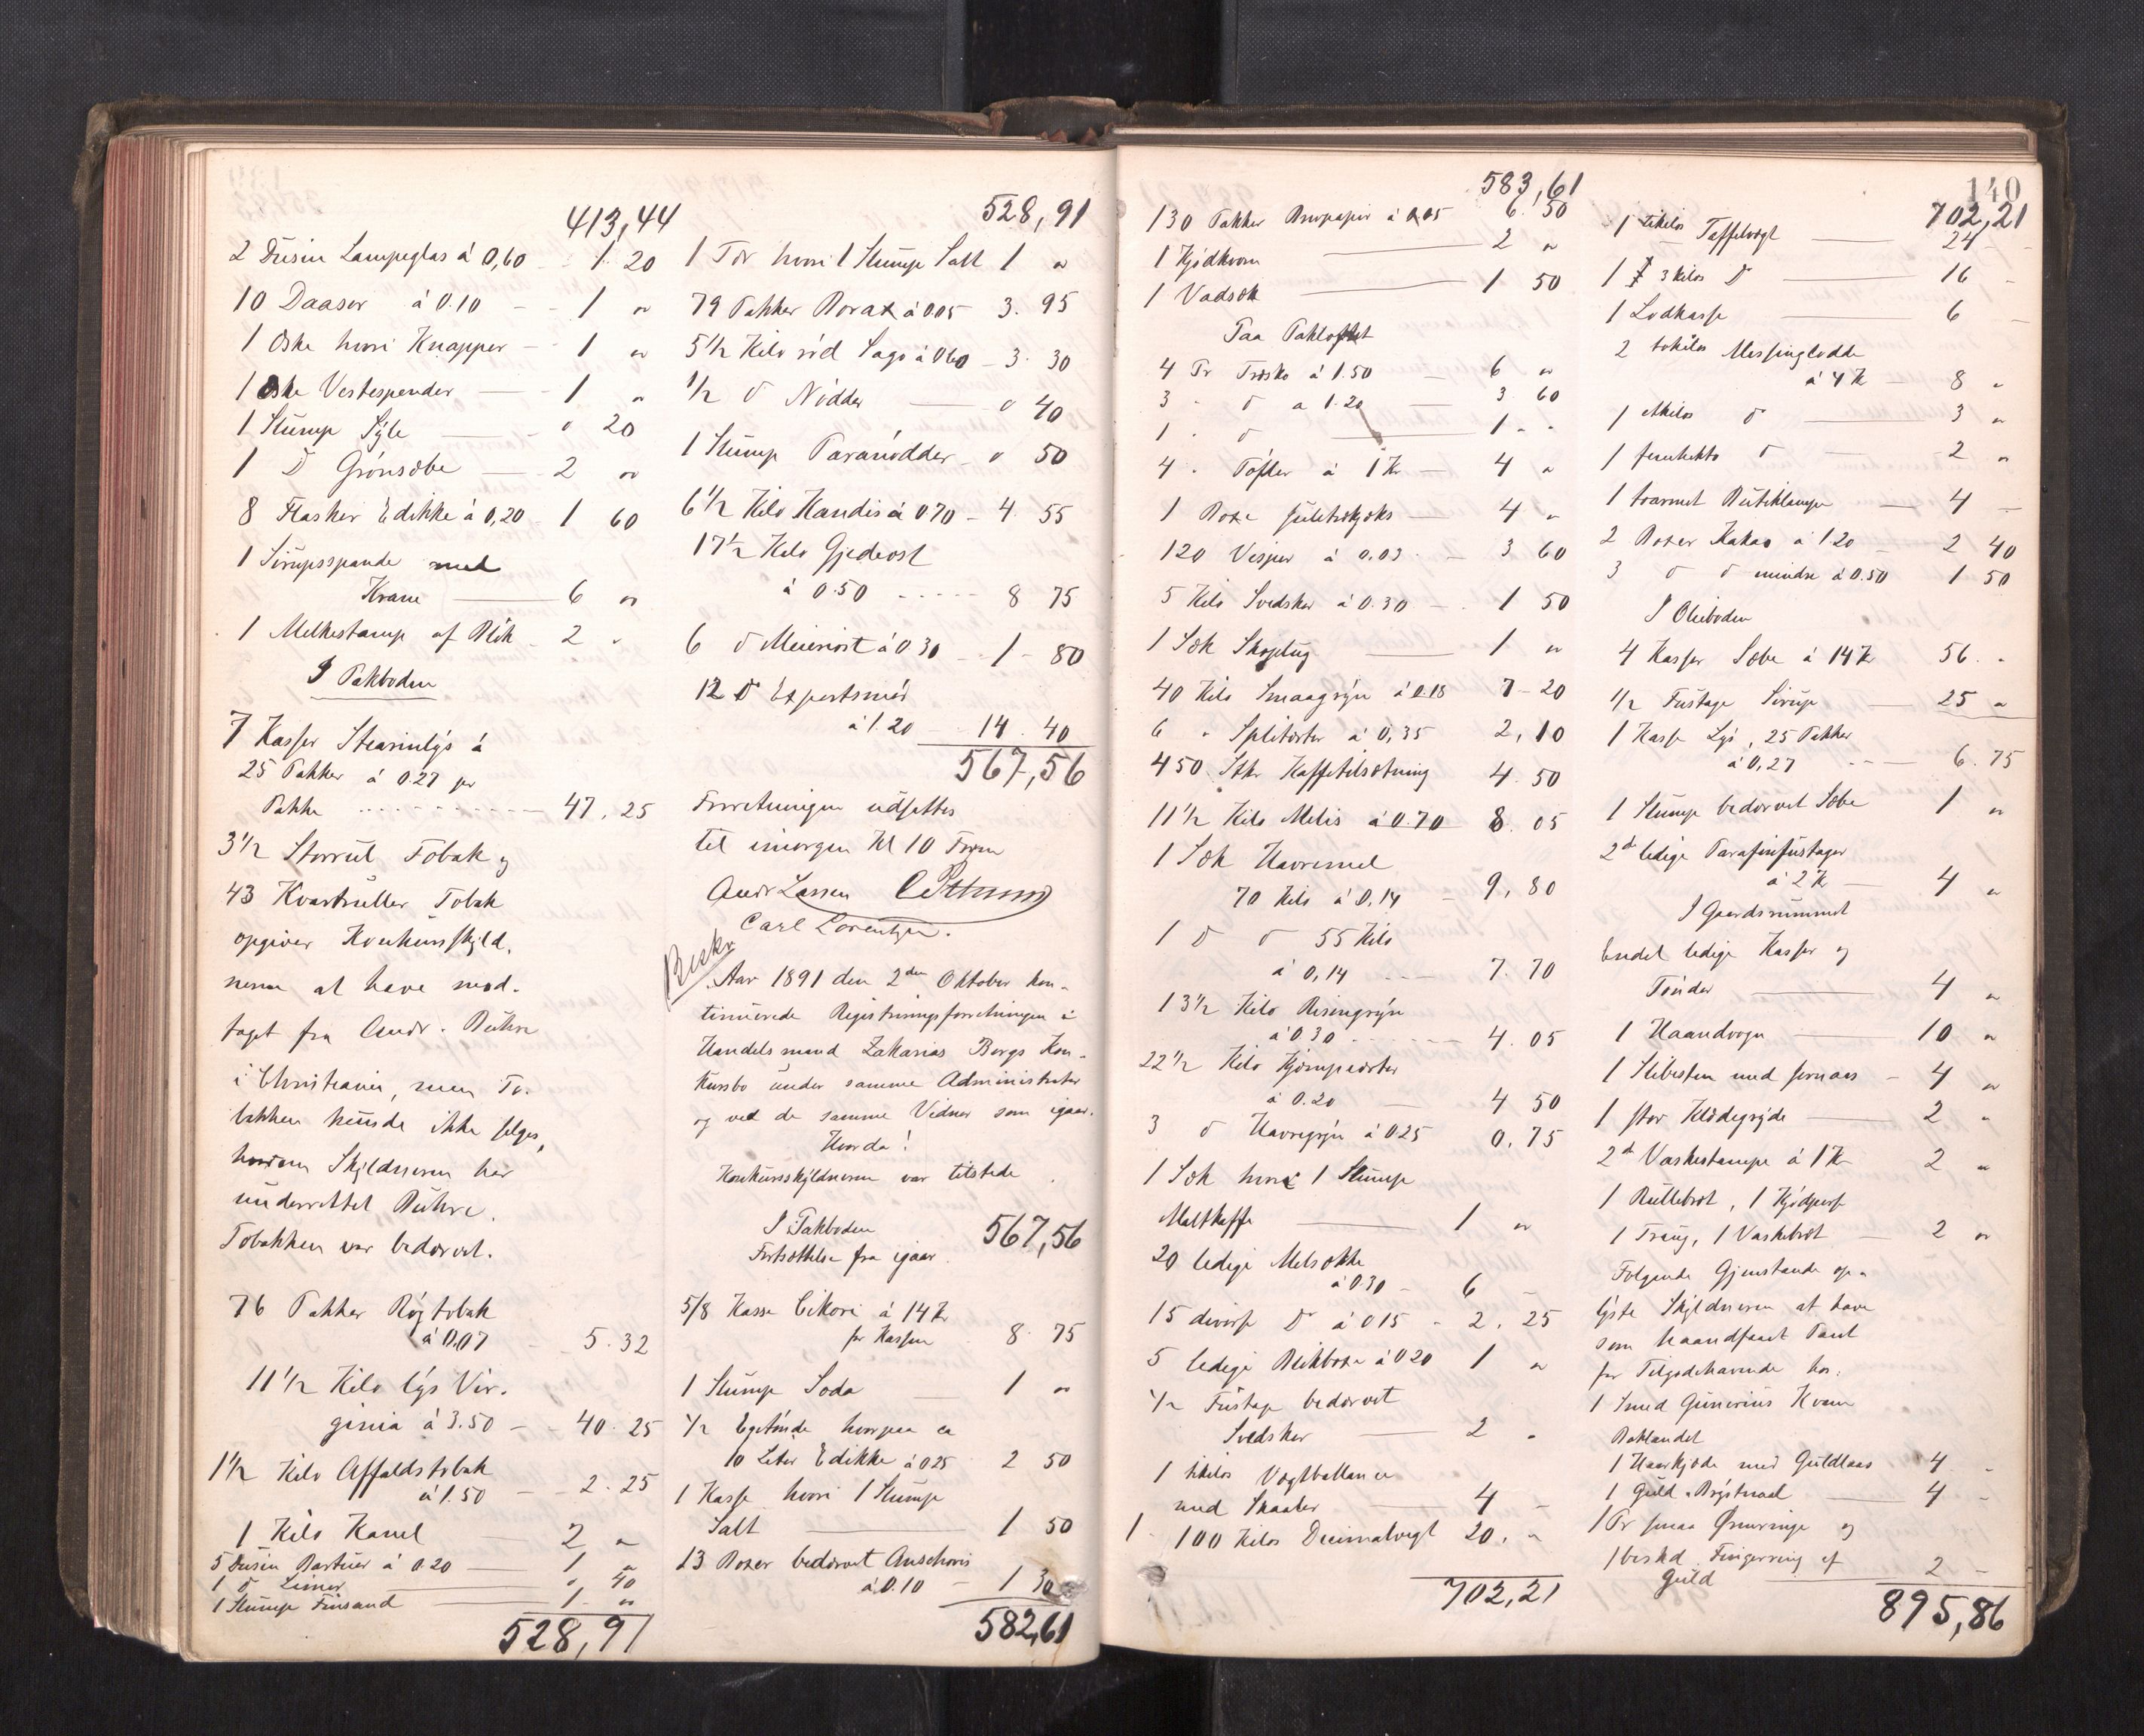 413,44
2 Dusin Lampeglas á 0,60 - 1. 20
10 Daaser á 0.10 - - 1 "
1 Øske hvori Knapper - 1 "
1 Øske Vestespender - 1 "
1 Slump Syle - " 20
1 D Grønsæbe - 2 "
8 Flasker Edikke á 0,20 1 60
1 Sirupsspande med
Krane - 6 "
1 Melkestamp af Blik - 2 "
I Pakboden
7 Kasser Stearinlys á
25 Pakker á 0.27 pr
Pakke - 47,25
3 1/2 Storrul Tobak og
43 Kvartruller Tobak
opgiver Konkursskyld.
neren at have mod-
taget fra Andr. Butnre
i Christiania, men To-
bakken kunde ikke selges,
hvorom Skyldneren har
underrettet
Tobakken var bedærvet.
76 Pakker Røgtobak
á 0,07 - 5.32
11 1/2 Kilo lys Vir-
ginia á 3.50 - 40.25
1 1/2 Kilo Affaldstobak
á 1.50 - 2.25
1 Kilo Kanel 2 "
5 Dusin á 0.20 - 1 "
1 D - " 40
1 Slump Finsand - 1 "
528,91
528,91
1 Tdr hvori 1 Slump Salt 1 "
79 Pakker Borax á 0.05 - 3.95
5 1/2 Kilo rød Sago á 0.60 - 3.30
1/2 D Nødder - " 40
1 Slump Paranødder - " 50
6 1/2 Kilo Kandis á 0.70 - 4.55
17 1/2 Kilo Gjedeost
á 0.50 - 8 75
6 D Meieriost á 0.30 - 1 - 80
12 D Exportsmør
á 1.20 - 14.40
567,56
Forretningen udsettes
til imorgen Kl 10 Form
Andr Larsen
Carl Lorentzen.
Beskr
Aar 1891 den 2den Oktober kon-
tinuerede Registreringsforretningen i
Handelsmand Zakarias Bergs Kon-
kursbo under samme Administrator
og ved de samme Vidner som igaar.
Hvorda!
Konkursskyldneren var tilstede.
I Pakboden 567,56
Fortsættelse fra igaar
5/8 Kasse Cikori á 14 Kr
pr Kassen 8.75
1 Slump Soda - 1 "
1/2 Egetønde hvorpaa ca
10 Liter Edikke á 0.25 2 50
1 Kasse hvori 1 Slump
Salt - 1 50
13 Boxer bedærvet Anschovis
á 0.10 - 1 30
582,61
583,61
130 Pakker Brevpapir á 0,05 6.50
1 Kjødkvern - 2 "
1 Vadsæk - 1 50
Paa Pakloftet
4 Pr Træsko á 1.50 - 6 "
3 " D a 1.20 - 3 60
1 " D - 1 - "
4 " Tøfler á 1 Kr - 4 "
1 Boxe - 4 "
120 á 0.03 - 3 60
5 Kilo Svedsker á 0.30 - 1 50
1 Sæk - 1 "
40 Kilo Smaagryn á 0.18 7-20
6 " Spliterter á 0,35 2,10
450 Stkr Kaffetilsætning 4.50
11 1/2 Kilo Melis á 0.70 8.05
1 Sæk Havremel
70 Kilo á 0,14 - 9,80
1 D D 55 Kilo
á 0,14 - 7.70
13 1/2 Kilo Risengryn
á 0.30 - 4.05
22 1/2 Kilo Kjæmpeerter
á 0.20 - 4 50
3 D Havregryn á 0.25 0.75
1 Sæk hvori 1 Slump
Maltkaffe - 1 "
20 ledige Melsække
á 0.30 - 6 -
15 diverse D á 0.15 - 2.25
5 ledige Blikboxe á 0.20 1 "
1/2 Fustage bedærvet
Svedsker - 2 "
1 Vægtballance
med Skaaler - 4 -
1 100 Kilos Decimalvegt 20. "
702,21
140
702,21
1 Taffelvegt - 24 -
1 3 kilos D - 16 -
1 Lodkasse - 6 -
2 tokilos Messinglodde
á 4 Kr - 8 "
1 D - 3 "
1 femhekto D - 2 "
1 toarmet Butiklampe - 4 -
2 Boxer Kakao á 1.20 - 2 40
3 D D mindre á 0.50 1 50
I Olieboden
4 Kasser Sæbe á 14 Kr 56. "
1/2 Fustage Sirup - 25 "
1 Kasse Lys, 25 Pakker
á 0,27 - 6.75
1 Slump bedærvet Sæbe 1 "
2 ledige Parafinfustager
á 2 Kr - 4 "
I Gaardsrummet
Endel ledige Kasser og
Tønder - 4 "
1 Haandvogn - 10 "
1 Slibesten med - 4 "
1 stor Klædegryde - 2 "
2 Vaskestampe á 1 Kr 2 "
1 Rullebræt, 1 Kjødpresse
1 Traug, 1 Vaskebræt - 2 "
Følgende Gjenstande op-
lyste Skyldneren at have
som haandfaaet Pant
for Tilgodehavende hos:
1 Smed Gunerius Kvam
Baklandet
1 Haarkjæde med Guldlaas 4 -
1 Guld-Brystnaal - 4 -
1 Pr smaa Ørenringe og
1 beskd. Fingerring af
Guld - 2 -
895,86